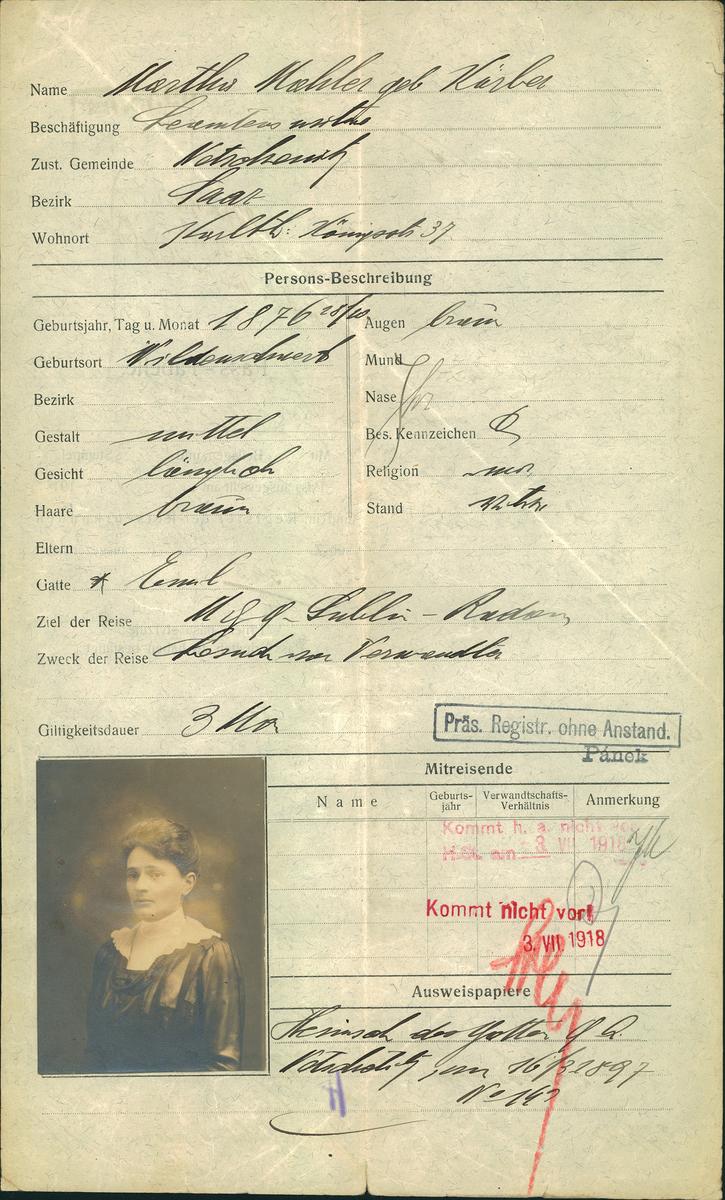 Name Martha Mahler geb Körber
Beschäftigung Beamtenswitwe
Zust. Gemeinde
Bezirk Saaz
Wohnort Karlth: Königsstr 37
Persons-Beschreibung
Geburtsjahr, Tag u. Monat 1876 28/10 Augen braun
Geburtsort Wildenschwert Mund
Bezirk Nase
Gestalt mittel Bes. Kennzeichen
Gesicht länglich Religion mos
Haare braun Stand Witwe
Eltern
Gatte Emil
Ziel der Reise M G G - Lublin - Radom
Zweck der Reise Besuch von Verwandten
Giltigkeitsdauer 3 Mon
Präs. Registr. ohne Anstand.
Pánek
Mitreisende
Name Geburtsjahr Verwandtschafts-Verhältnis Anmerkung
Kommt h. a. nicht vor
H.St. am 3. VII 1918
Kommt nicht vor!
3. VII 1918
Ausweispapiere
Heimsch des Gatten
16/3 1897
No 142